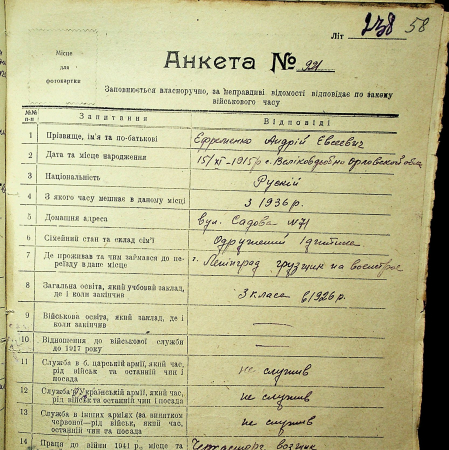 Літ 238 58
Місце
для
фотокартки
Анкета № 221
Заповнюється власноручно, за неправдиві відомості відповідає по закону
військового часу
№№ п-п Запитання Відповіді
1 Прізвище, ім'я та по-батькові Ефременко Андрій Евсеевич
2 Дата та місце народження 15/XI-1915р с. Орловской обл
3 Національність Рускій
4 З якого часу мешкає в даному місці З 1936 р.
5 Домашня адреса вул. Садова №71
6 Сімейний стан та склад сім'ї Одружений 1 дитина
7 Де проживав та чим займався до пе-
реїзду в дане місце г. Ленінград грузчик на
8 Загальна освіта, який учбовий заклад,
де і коли закінчив 3 класа 1926 р.
9 Військова освіта, який заклад, де і
коли закінчив —
10 Відношення до військової служби
до 1917 року —
11 Служба в б. царській армії, який час,
рід військ та останній чин і
посада не служив
12 Служба в Українській армії, який час,
рід військ та останній чин і посада не служив
13 Служба в інших арміях (за винятком
червоної—рід військ, який час,
останній чин та посада не служив
14 Праця до війни 1941 р., місце та возчик